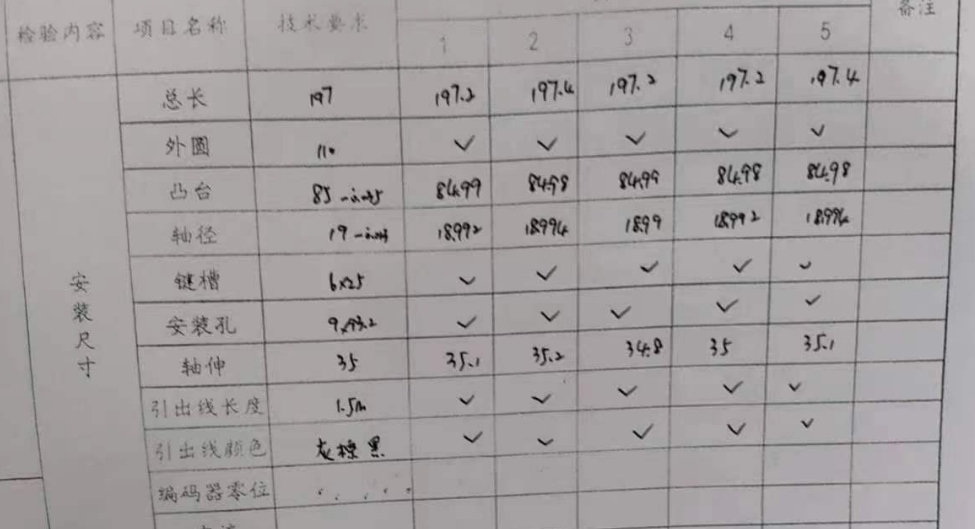 检验内容 项目名称 技术要求 备注
1 2 3 4 5
安装尺寸
总长 197 197.2 197.4 197.2 197.2 197.4
外圆 110 ✓ ✓ ✓ ✓ ✓
凸台 85 84.99 84.98 84.99 84.98 84.98
轴径 19 18.992 18.994 18.99 18.992 18.994
键槽 6x25 ✓ ✓ ✓ ✓ ✓
安装孔 ✓ ✓ ✓ ✓ ✓
轴伸 35 35.1 35.2 34.8 35 35.1
引出线长度 1.5m ✓ ✓ ✓ ✓ ✓
引出线颜色 灰棕黑 ✓ ✓ ✓ ✓ ✓
编码器零位